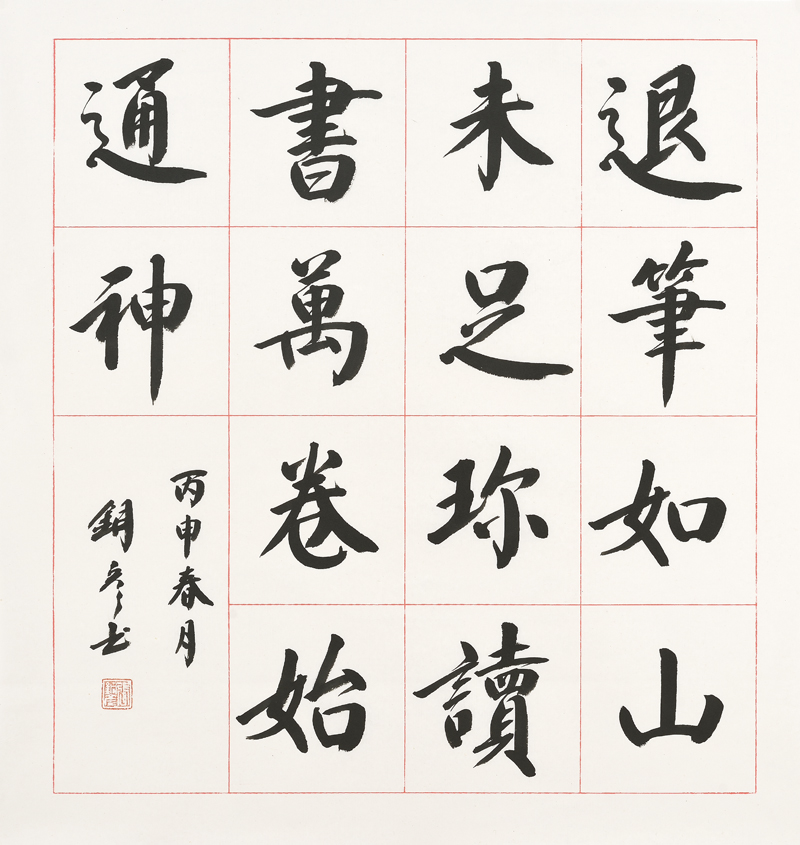 退筆如山
未足珎讀
書萬卷始
通神
丙申春月
书